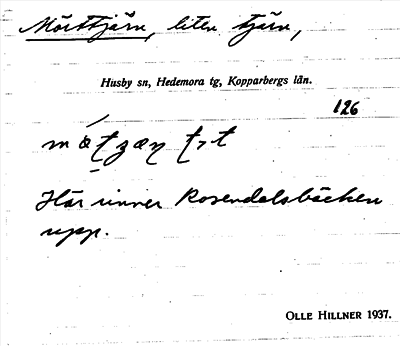 Mörttjärn, liten tjärn,
Husby sn, Hedemora tg, Kopparbergs län.
126
Här rinner Rosendalsbäcken
upp.
OLLE HILLNER 1937.